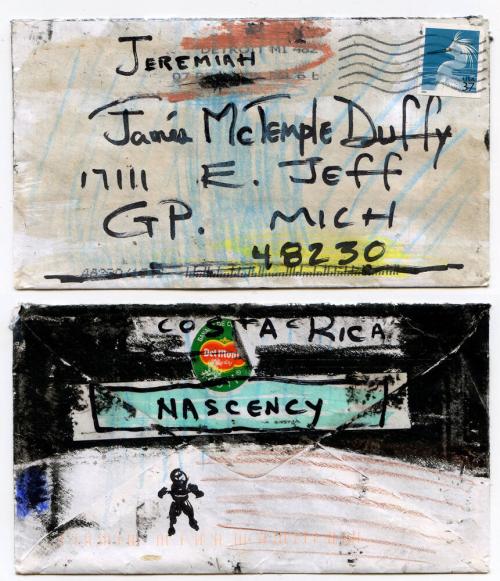 DETROIT MI 482
JEREMIAH
USA
37
James McTemple Duffy
17111 E. JEFF
GP. MICH
48230
COSTA RICA
Del Monte
NASCENCY